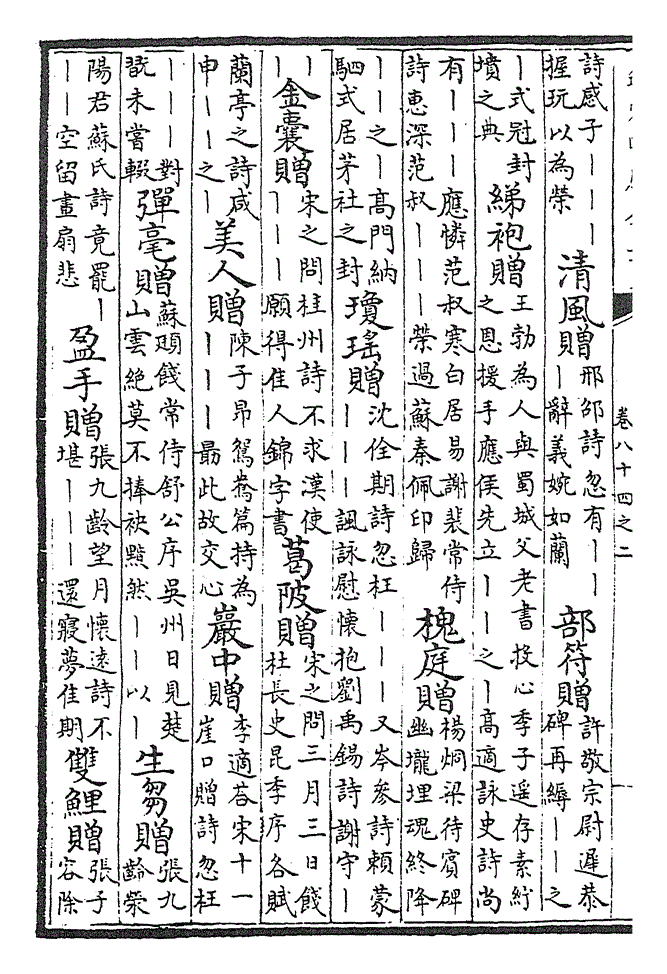 卷八十四之二
詩感子｜｜｜握玩以為榮 清風贈 邢邵詩忽有｜｜｜辭義婉如蘭 部符贈 許敬宗尉遲恭碑再縟｜｜之
｜式冠封墳之典 綈袍贈 王勃為人與蜀城父老書投心季子遥存素紵之恩援手應侯先立｜｜之｜高適詠史詩尚
有｜｜｜應憐范叔寒白居易謝裴常侍詩恵深范叔｜｜｜榮過蘇秦佩印歸 槐庭贈 楊烱梁待賓碑幽壠埋魂終降
｜｜之｜高門納駟式居茅社之封 瓊瑤贈 沈佺期詩忽枉｜｜｜又岑參詩頼蒙｜｜｜諷詠慰懷抱劉禹錫詩謝守｜
｜｜ 金囊贈 宋之問桂州詩不求漢使｜｜｜願得佳人錦字書 葛陂贈 宋之問三月三日餞杜長史昆季序各賦
蘭亭之詩咸申｜｜之｜ 美人贈 陳子昂鴛鴦篇持為｜｜｜最此故交心 巖中贈 李適荅宋十一崖口贈詩忽枉
｜｜｜對翫未嘗輟 彈毫贈 蘇頲餞常侍舒公序吳州日見楚山雲絶莫不捧袂黯然｜｜以｜ 生芻贈 張九齡榮
陽君蘇氏詩竟罷｜｜｜空留畫扇悲 盈手贈 張九齡望月懷遠詩不堪｜｜｜還寢夢佳期 雙鯉贈 張子容除